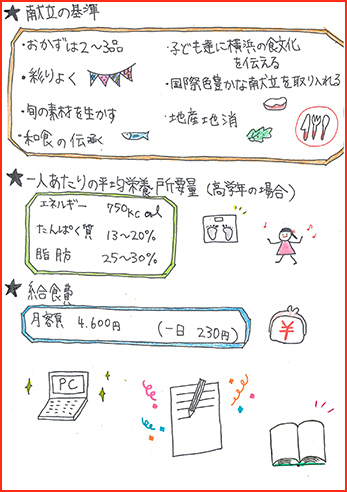 ★ 献立の基準
・おかずは2〜3品
・彩りよく
・旬の素材を生かす
・和食の伝承
・子ども達に横浜の食文化
を伝える
・国際色豊かな献立を取り入れる
・地産地消
★ 一人あたりの平均栄養所要量(高学年の場合)
エネルギー 750kcal
たんぱく質 13〜20%
脂肪 25〜30%
★ 給食費
月額 4.600円 (一日 230円)
¥
PC